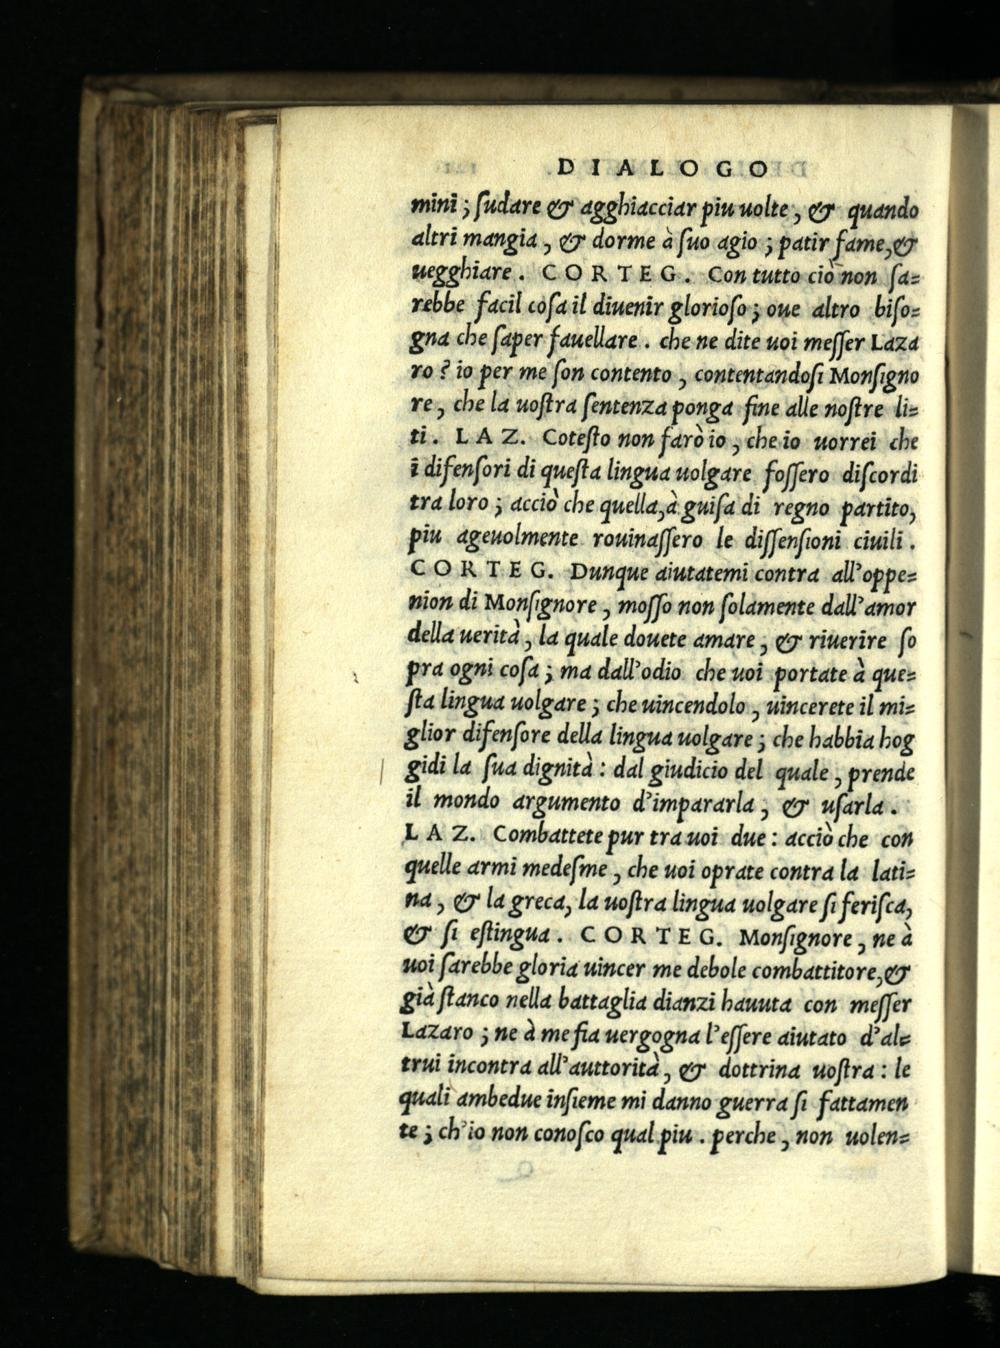 DIALOGO
mini; ſudare & agghiacciar piu uolte, & quando
altri mangia, & dorme à ſuo agio; patir fame,&
uegghiare. CORTEG. Con tutto ciò non ſa=
rebbe facil coſa il diuenir glorioſo; oue altro biſo=
gna che ſaper fauellare. che ne dite uoi meſſer Laza
ro? io per me ſon contento, contentandoſi Monſigno
re, che la uoſtra ſentenza ponga fine alle noſtre li=
ti. LAZ. Coteſto non farò io, che io uorrei che
i difenſori di queſta lingua uolgare foſſero diſcordi
tra loro; acciò che quella,à guiſa di regno partito,
piu ageuolmente rouinaſſero le diſſenſioni ciuili.
CORTEG. Dunque aiutatemi contra all'oppe=
nion di Monſignore, moſſo non ſolamente dall'amor
della uerità, la quale douete amare, & riuerire ſo
pra ogni coſa; ma dall'odio che uoi portate à que=
ſta lingua uolgare; che uincendolo, uincerete il mi=
glior difenſore della lingua uolgare; che habbia hog
gidi la ſua dignità: dal giudicio del quale, prende
il mondo argumento d'impararla, & uſarla.
LAZ. Combattete pur tra uoi due: acciò che con
quelle armi medeſme, che uoi oprate contra la lati=
na, & la greca, la uoſtra lingua uolgare ſi feriſca,
& ſi eſtingua. CORTEG. Monſignore, ne à
uoi ſarebbe gloria uincer me debole combattitore,&
già ſtanco nella battaglia dianzi hauuta con meſſer
Lazaro; ne à me fia uergogna l'eſſere aiutato d'al=
trui incontra all'auttorità, & dottrina uoſtra: le
quali ambedue inſieme mi danno guerra ſi fattamen
te; ch'io non conoſco qual piu. perche, non uolen=